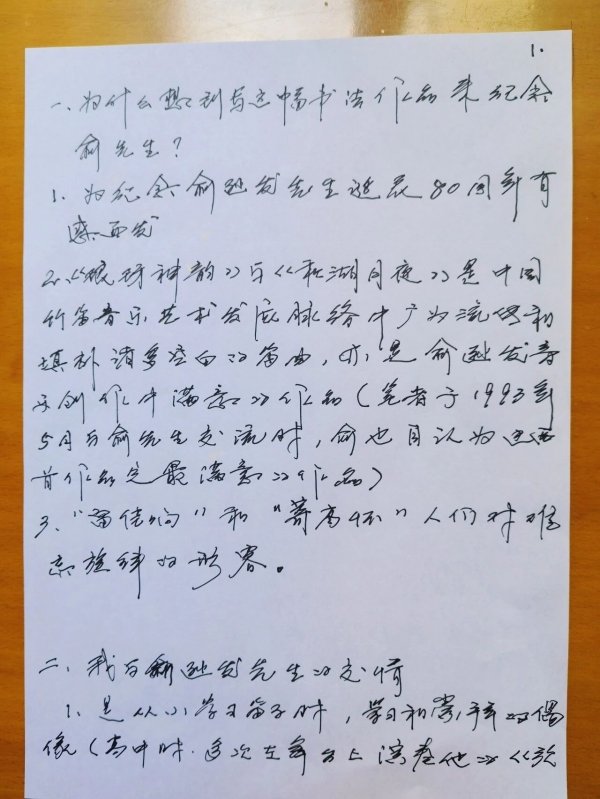 1.
一、为什么想到写这幅书法作品来纪念
俞先生？
1. 为纪念俞逊发先生诞辰80周年有
感而发
2、《琅琊神韵》与《秋湖月夜》是中国
竹笛音乐艺术发展脉络中广为流传和
填补诸多空白的笛曲，亦是俞逊发音
乐创作中满意的作品（笔者于1993年
5月与俞先生交流时，俞也自认为这两
首作品是最满意的作品）
3、“ ”和“寄高怀”人们对难
忘旋律的形容。
二、我与俞逊发先生的交情
1、是从小学习笛子时，学习和崇拜的偶
像（高中时.多次在舞台上演奏他的《歌